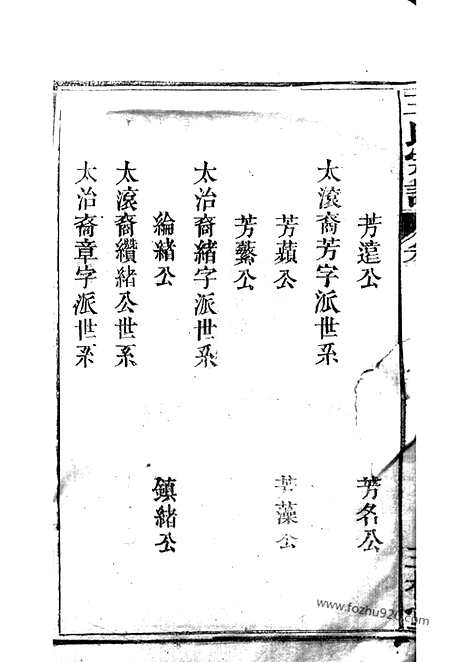 王氏宗譜
芳遠公 芳名公
太滾裔芳字派世系
芳蘋公 芳藻公
芳蘩公
太治裔緒字派世系
綸緒公 鎮緒公
太滾裔纘緒公世系
太治裔章字派世系
www.fozhu920.com